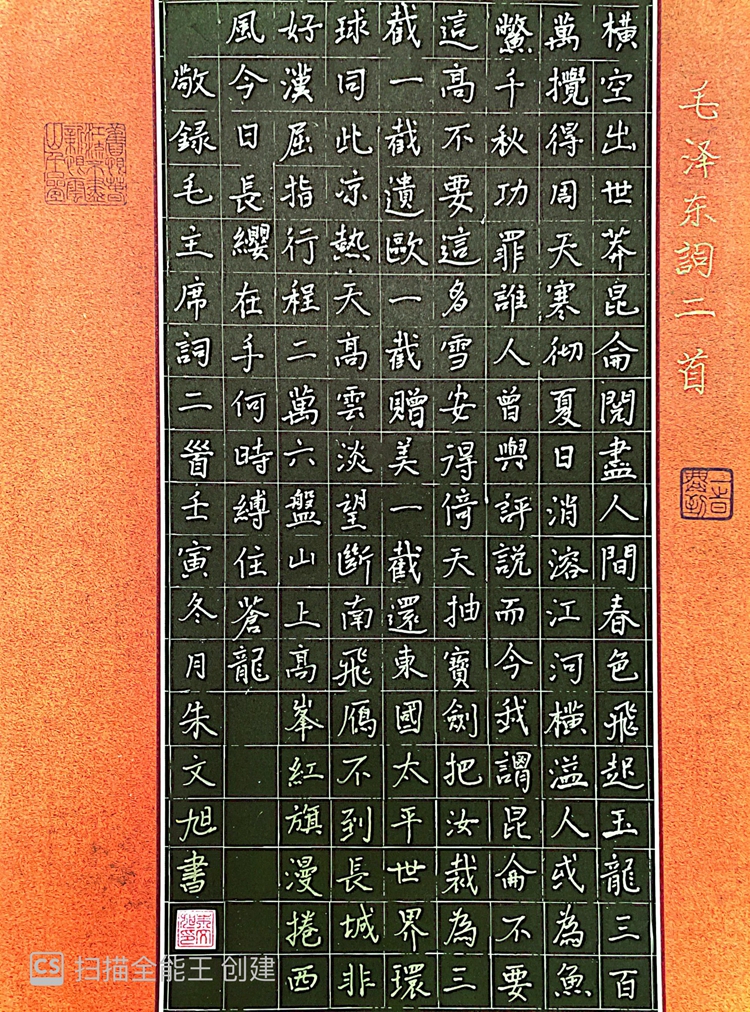 毛泽东詞二首
橫空出世莽昆侖閱盡人間春色飛起玉龍三百
萬攪得周天寒彻夏日消溶江河橫溢人或為魚
鱉千秋功罪誰人曾與評説而今我謂昆侖不要
這高不要這多雪安得倚天抽寶劍把汝裁為三
截一截遺歐一截贈美一截還東國太平世界環
球同此凉熱天高雲淡望斷南飛雁不到長城非
好漢屈指行程二萬六盤山上高峯紅旗漫捲西
風今日長纓在手何時縛住蒼龍
敬録毛主席詞二首壬寅冬月朱文旭書
CS 扫描全能王 创建